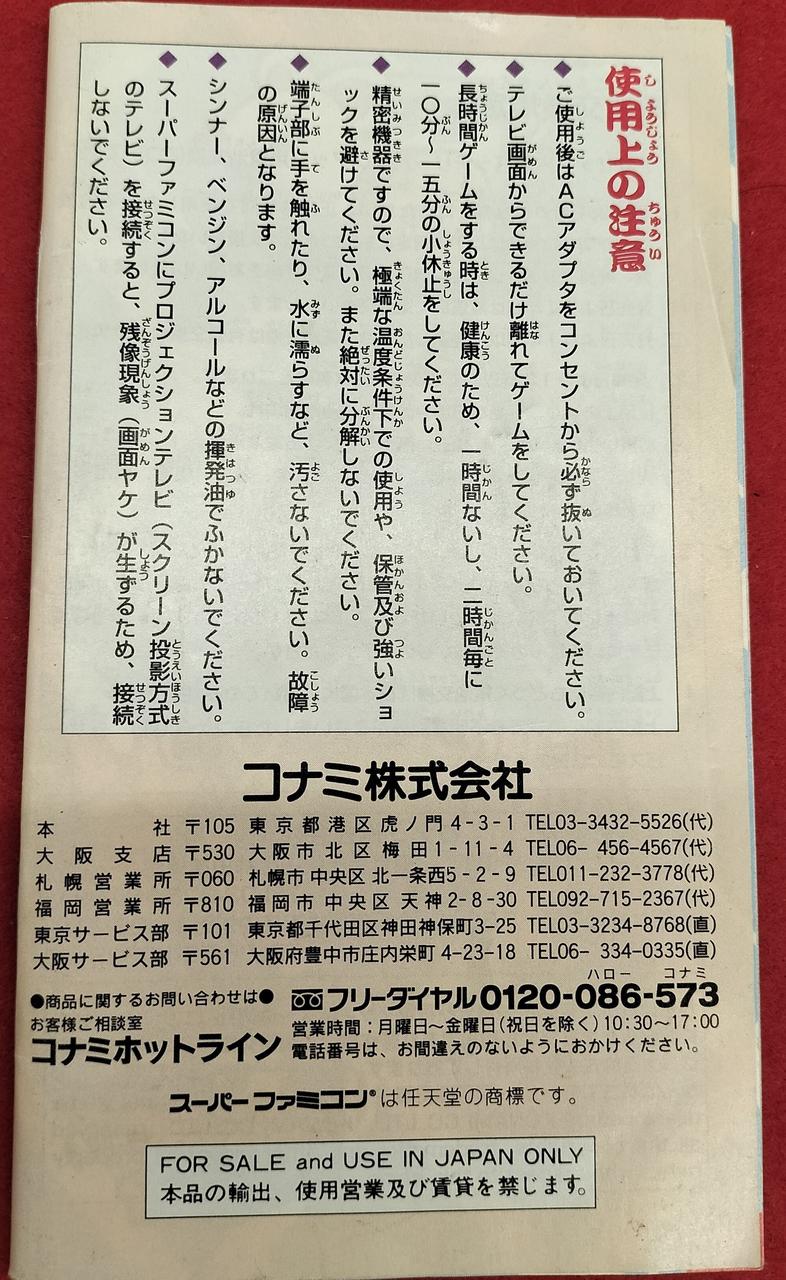 使用上の注意
◆ご使用後はACアダプタをコンセントから必ず抜いておいてください。
◆テレビ画面からできるだけ離れてゲームをしてください。
◆長時間ゲームをする時は、健康のため、一時間ないし、二時間毎に
一〇分～一五分の小休止をしてください。
◆精密機器ですので、極端な温度条件下での使用や、保管及び強いショ
ックを避けてください。また絶対に分解しないでください。
◆端子部に手を触れたり、水に濡らすなど、汚さないでください。故障
の原因となります。
◆シンナー、ベンジン、アルコールなどの揮発油でふかないでください。
◆スーパーファミコンにプロジェクションテレビ（スクリーン投影方式
のテレビ）を接続すると、残像現象（画面ヤケ）が生ずるため、接続
しないでください。
コナミ株式会社
本社 〒105 東京都港区虎ノ門4-3-1 TEL03-3432-5526(代)
大阪支店 〒530 大阪市北区梅田1-11-4 TEL06- 456-4567(代)
札幌営業所 〒060 札幌市中央区北一条西5-2-9 TEL011-232-3778(代)
福岡営業所 〒810 福岡市中央区天神2-8-30 TEL092-715-2367(代)
東京サービス部 〒101 東京都千代田区神田神保町3-25 TEL03-3234-8768(直)
大阪サービス部 〒561 大阪府豊中市庄内栄町4-23-18 TEL06- 334-0335(直)
●商品に関するお問い合わせは●
お客様ご相談室
コナミホットライン
ハロー コナミ
フリーダイヤル0120-086-573
営業時間：月曜日～金曜日(祝日を除く)10:30～17:00
電話番号は、お間違えのないようにおかけください。
スーパーファミコン®は任天堂の商標です。
FOR SALE and USE IN JAPAN ONLY
本品の輸出、使用営業及び賃貸を禁じます。